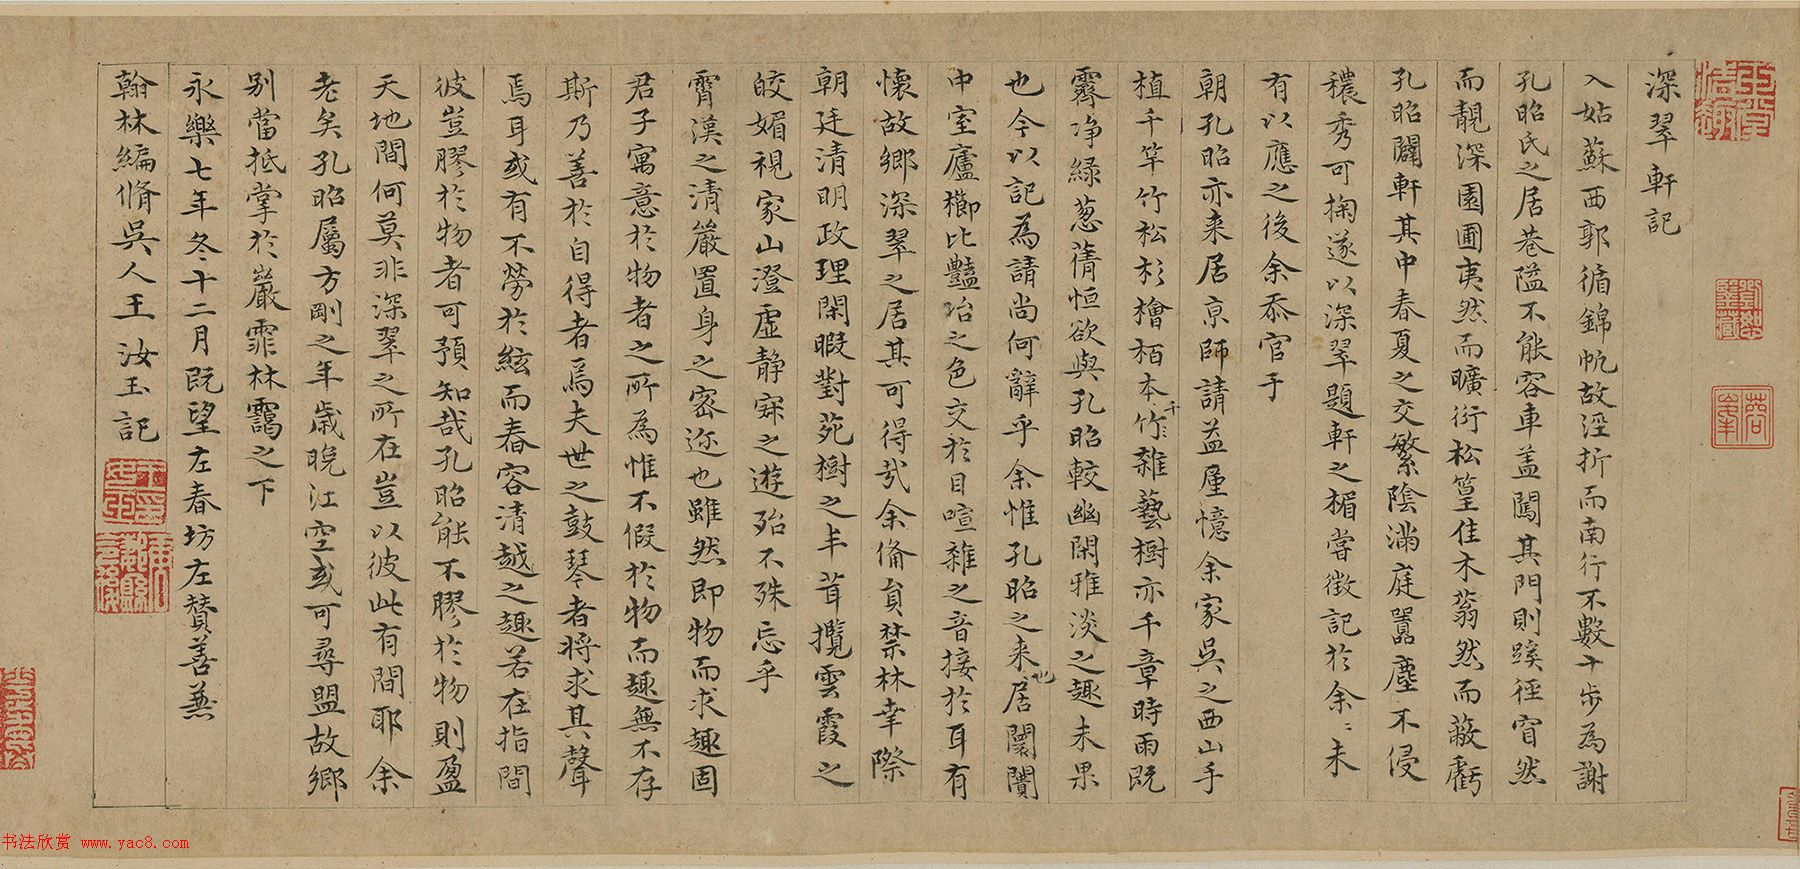 深翠軒記
入姑蘇西郭循錦帆故涇折而南行不數十步為謝
孔昭氏之居巷隘不能容車蓋闖其門則蹊徑窅然
而靚深園圃夷然而曠衍松篁佳木蓊然而蔽虧
孔昭闢軒其中春夏之交繁陰滿庭嚻塵不侵
穠秀可掬遂以深翠題軒之楣嘗徵記於余〻未
有以應之後余忝官于
朝孔昭亦来居京師請益屢憶余家吳之西山手
植千竿竹松杉檜栢本千竹〻雜藝樹亦千章時雨既
霽净緑葱蒨恒欲與孔昭較幽閑雅淡之趣未果
也今以記為請尚何辭乎余惟孔昭之来居也闤闠
中室廬櫛比豔冶之色交於目喧雜之音接於耳有
懷故鄉深翠之居其可得哉余俻員禁林幸際
朝廷清明政理閑暇對苑樹之丰茸攬雲霞之
皎媚視家山澄虛静寐之遊殆不殊忘乎
霄漢之清嚴置身之密迩也雖然即物而求趣固
君子寓意於物者之所為惟不假於物而趣無不存
斯乃善於自得者焉夫世之鼓琴者将求其聲
焉耳或有不勞於絃而舂容清越之趣若在指間
彼豈膠於物者可預知哉孔昭能不膠於物則盈
天地間何莫非深翠之所在豈以彼此有間耶余
老矣孔昭屬方剛之年歲晚江空或可尋盟故鄉
别當抵掌於巖霏林靄之下
永樂七年冬十二月既望左春坊左贊善兼
翰林編脩吳人王汝玉記
书法欣赏 www.yac8.com